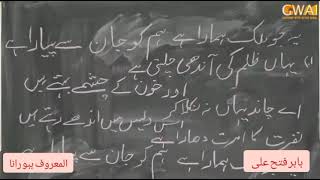 GWAI
یہ جو ملک ہمارا ہے ہم کو جان سے پیارا ہے
یہاں ظلم کی آندھی چلتی ہے
اور خون کے چشمے بہتے ہیں
اے چاند یہاں نہ نکلا کر
اس دیس میں اندھے رہتے ہیں
نفرت کا امرت دھارا ہے
ہمارا ہے ہم کو جان سے
بابر فتح علی
المعروف پپو رانا